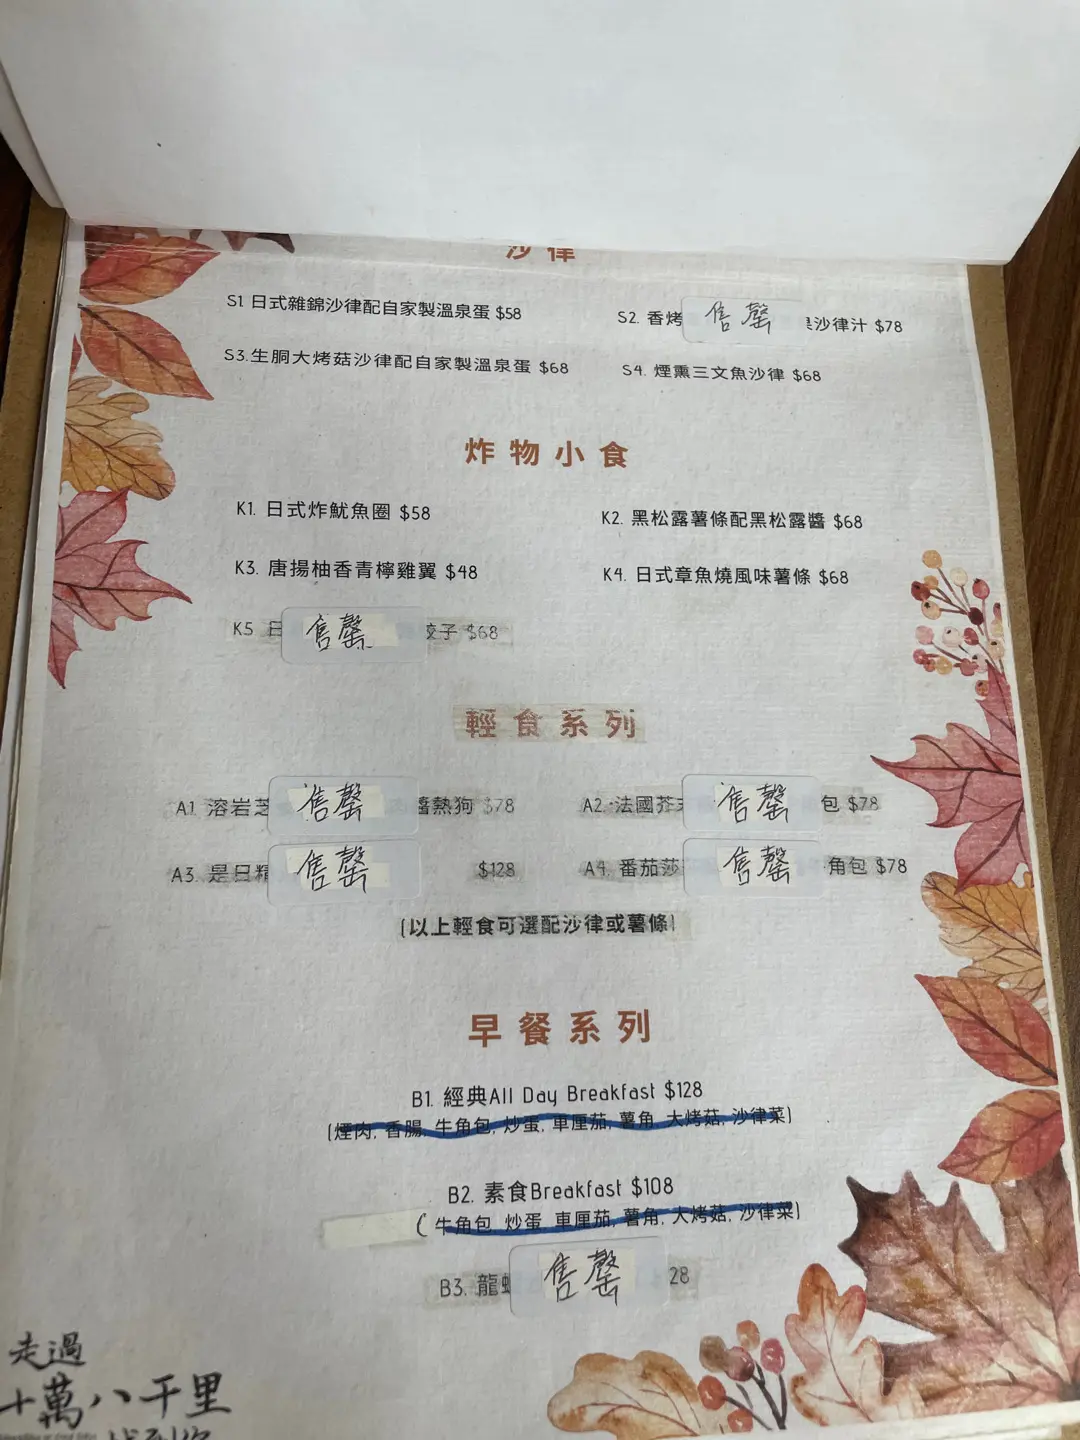 沙律
S1 日式雜錦沙律配自家製溫泉蛋 $58
S2. 香烤 售罄 沙律汁 $78
S3.生胴大烤菇沙律配自家製溫泉蛋 $68
S4. 煙熏三文魚沙律 $68
炸物小食
K1. 日式炸魷魚圈 $58
K2. 黑松露薯條配黑松露醬 $68
K3. 唐揚柚香青檸雞翼 $48
K4. 日式章魚燒風味薯條 $68
K5 日 售罄 餃子 $68
輕食系列
A1 溶岩芝 售罄 醬熱狗 $78
A2. 法國芥 售罄 包 $78
A3. 是日精 售罄 $128
A4. 番茄莎 售罄 角包 $78
(以上輕食可選配沙律或薯條)
早餐系列
B1. 經典All Day Breakfast $128
(煙肉, 香腸, 牛角包, 炒蛋, 車厘茄, 薯角, 大烤菇, 沙律菜)
B2. 素食Breakfast $108
(牛角包, 炒蛋, 車厘茄, 薯角, 大烤菇, 沙律菜)
B3. 龍 售罄 28
走過
十萬八千里